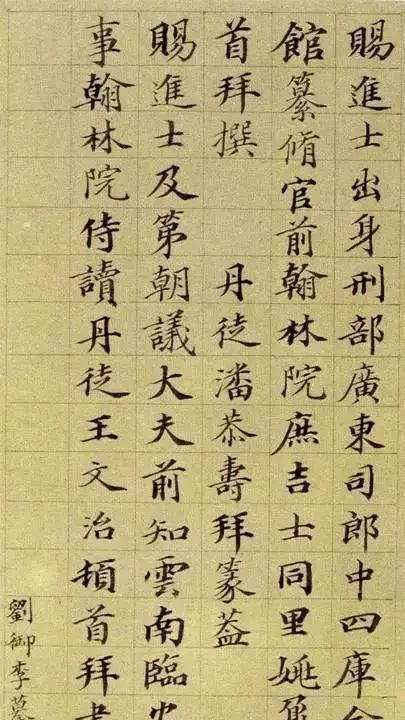 賜進士出身刑部廣東司郎中四庫
館纂脩官前翰林院庶吉士同里姚
首拜撰 丹徒潘恭壽拜篆蓋
賜進士及第朝議大夫前知雲南臨
事翰林院侍讀丹徒王文治頓首拜
劉御李墓